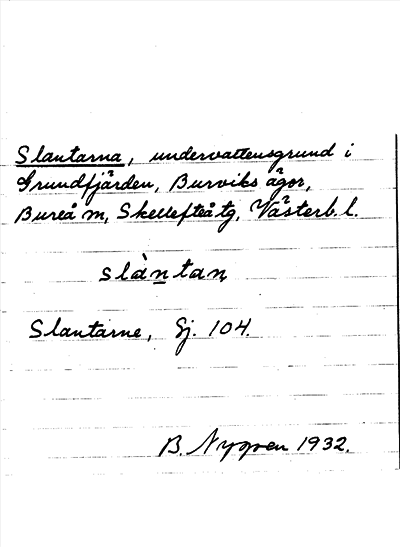 Slantarna, undervattensgrund i
Grundfjärden, Burviks ägor,
Bureå m, Skellefteå tg, Västerb. l.
slàntaṇ
Slantarne, Sj. 104.
B. Nygren 1932.